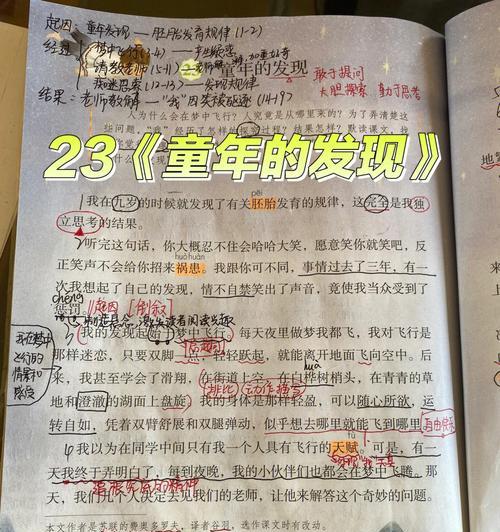 起因：童年发现——胚胎发育规律（1-2）
经过
梦中飞行（3-4）——产生疑惑
请教老师（5-11）
痴迷思索（12-13）——发现规律
结果：老师教解——“我”因笑被驱逐（14-19）
童年的发现
敢于提问
大胆探索 勤于思考
人为什么会在梦中飞行？人究竟是从哪里来的？为了弄清楚这
些问题，“我”经历了怎样的探究过程？结果怎样？默读课文，找
23《童年的发现》
pēi
①我在九岁的时候就发现了有关胚胎发育的规律，这完全是我独
立思考的结果。
②听完这句话，你大概忍不住会哈哈大笑，愿意笑你就笑吧，反
huò huàn
正笑声不会给你招来祸患。我跟你可不同，事情过去了三年，有一
次我想起了自己的发现，情不自禁笑出了声音，竟使我当众受到了
chéng
惩罚。 起因【倒叙】
制造悬念 激发读者阅读兴趣
③我的发现起始于梦中飞行。每天夜里做梦我都飞，我对飞行是
那样迷恋，只要双脚一点，轻轻跃起，就能离开地面飞向空中。后
huà
来，我甚至学会了滑翔，在街道上空，在白桦树梢头，在青青的草
排比 动作描写
地和澄澈的湖面上盘旋。我的身体是那样轻盈，可以随心所欲，运
转自如，凭着双臂舒展和双腿弹动，似乎想去哪里就能飞到哪里。
自由快乐
我在梦中
飞行的
情景和
感受
④我以为在同学中间只有我一个人具有飞行的天赋。可是，有一
天我终于弄明白了，每到夜晚，我的小伙伴们也都会在梦中飞腾。那
天，我们几个人决定去见我们的老师，让他来解答这个奇妙的问题。
本文作者是苏联的费奥多罗夫，译者谷羽，选作课文时有改动。